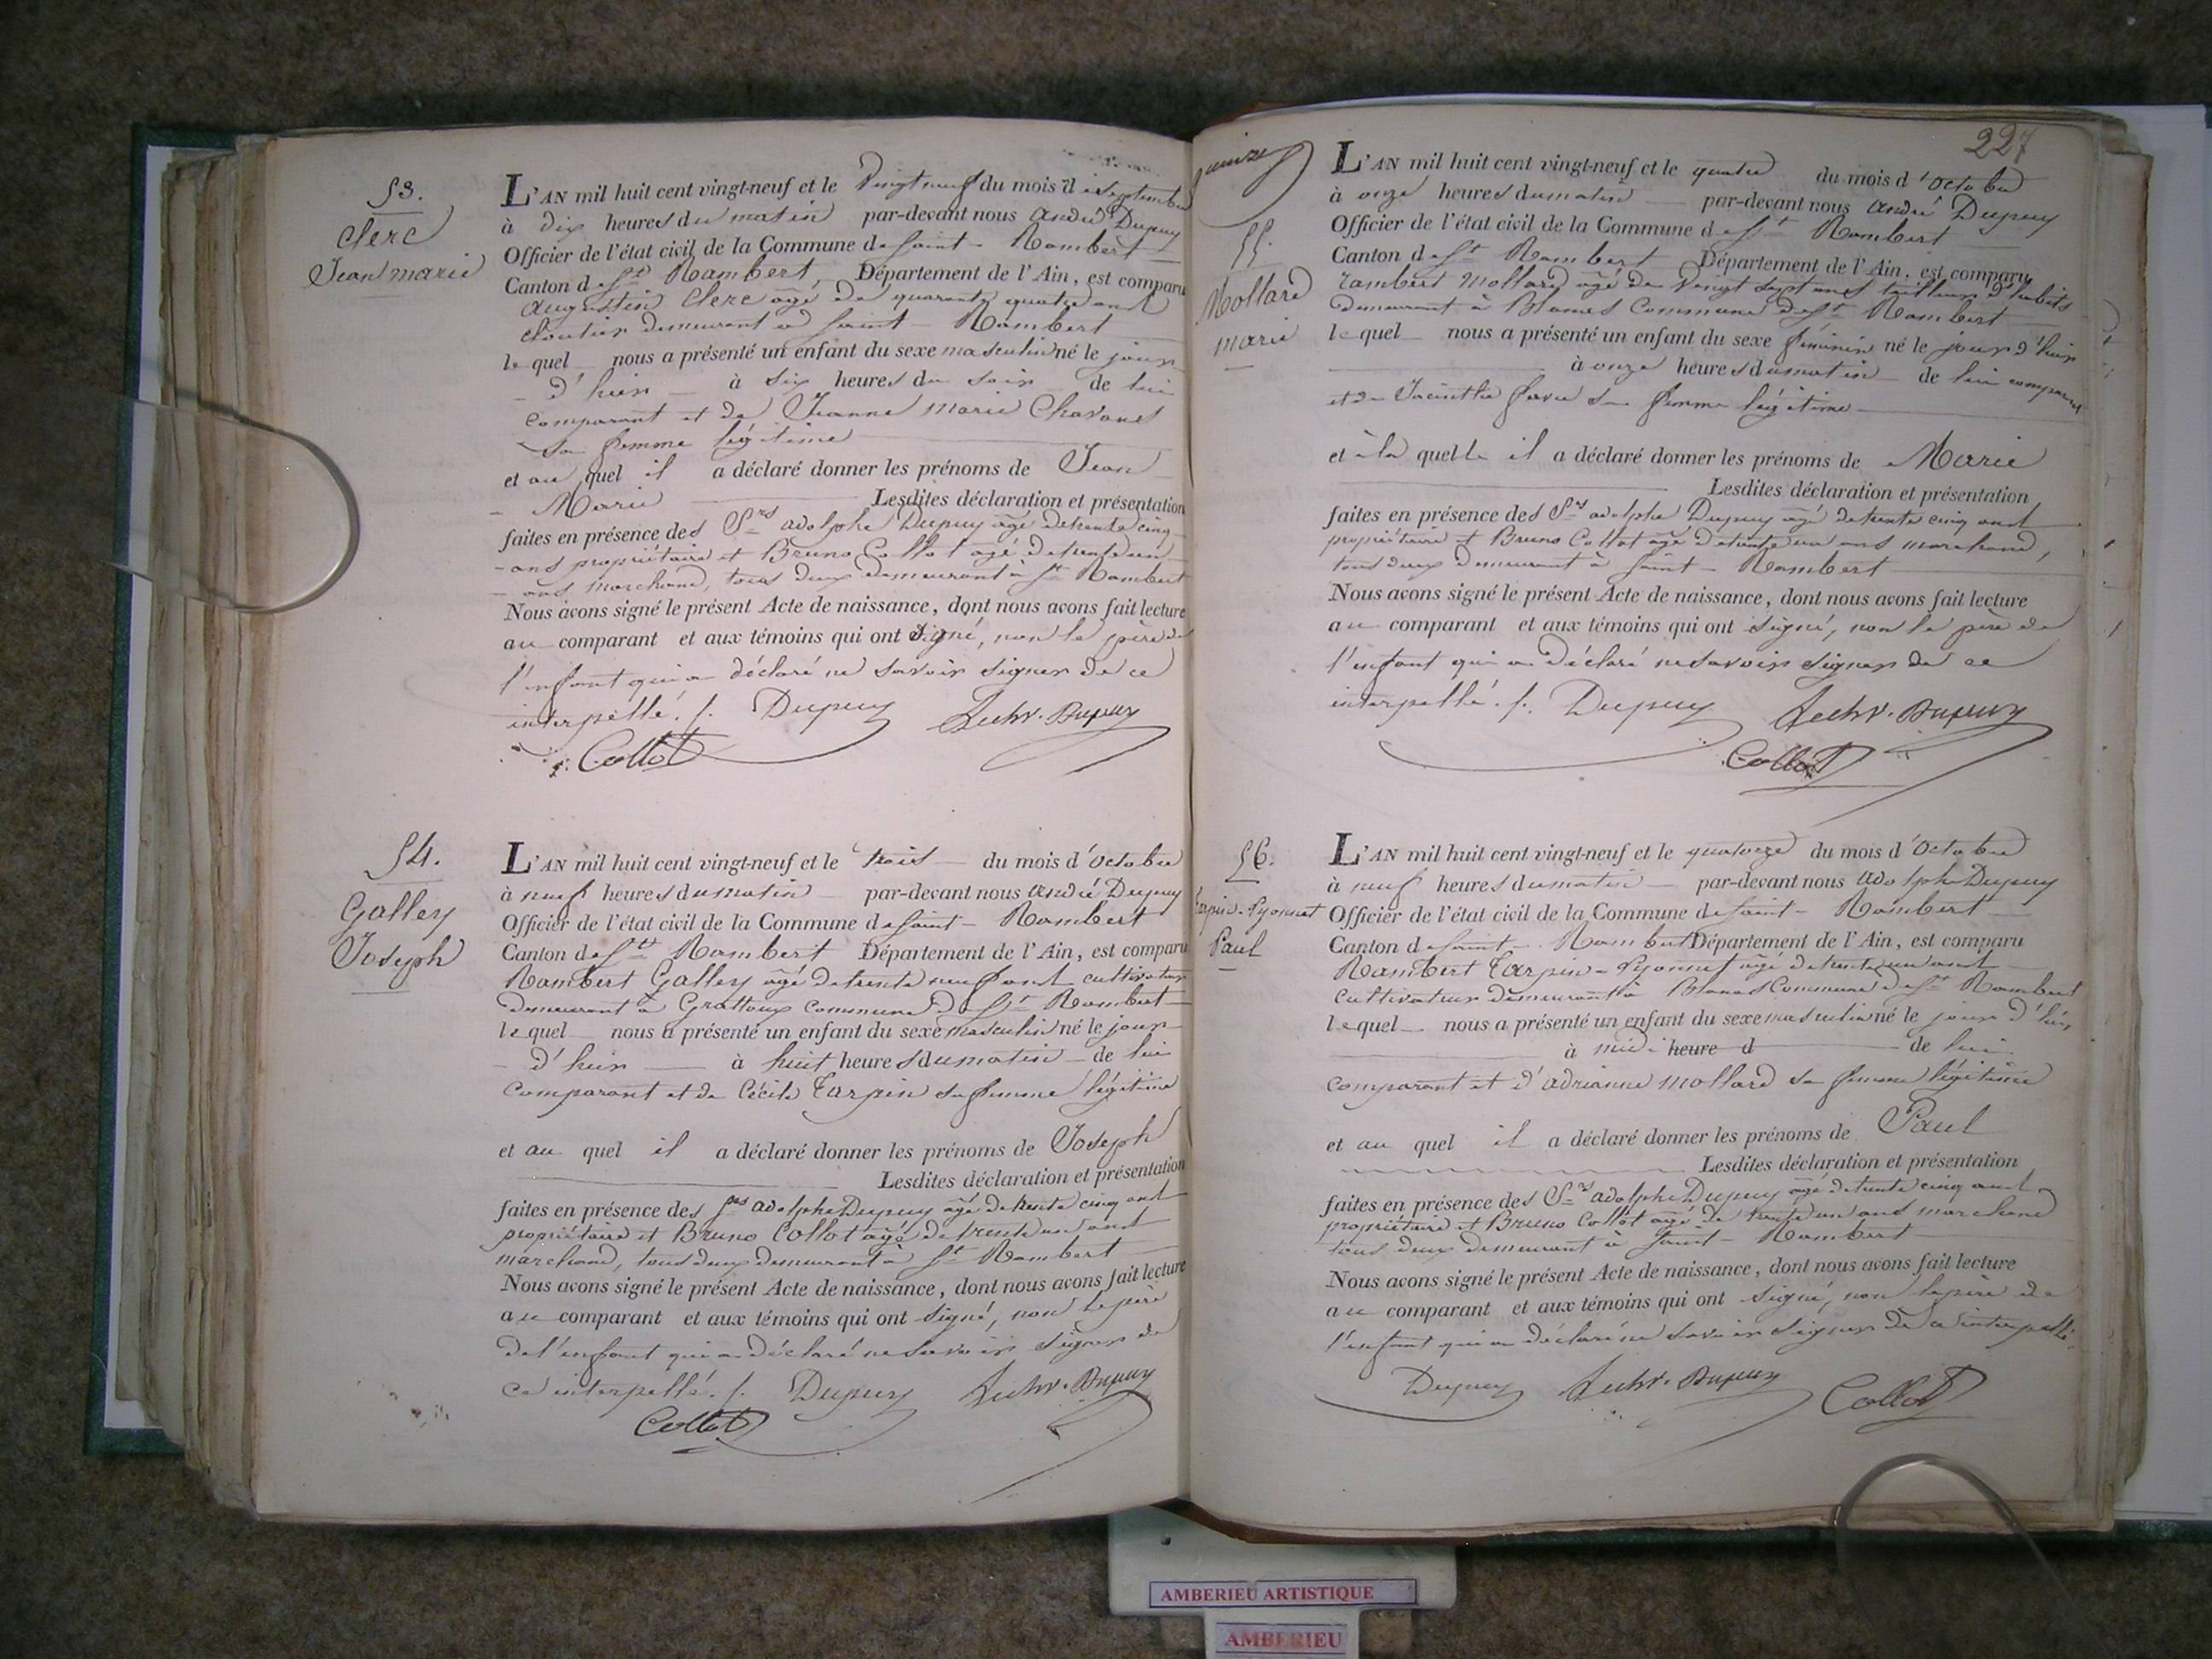 53.
Clerc
Jean marie
L'AN mil huit cent vingt-neuf et le Vingt neuf du mois de Septembre
à dix heures du matin par-devant nous André Dupuy
Officier de l'état civil de la Commune de Saint-Rambert
Canton de St Rambert Département de l'Ain, est comparu
Augustin Clerc âgé de quarante quatre ans
cloutier demeurant à Saint-Rambert
lequel nous a présenté un enfant du sexe masculin né le jour
d'hier à six heures du soir de lui
comparant et de Jeanne Marie Chavanet
sa femme légitime
et au quel il a déclaré donner les prénoms de Jean
Marie Lesdites déclaration et présentation
faites en présence des Srs adolphe Dupuy âgé de trente cinq
ans propriétaire et Bruno Collot âgé de trente un
ans marchand, tous deux demeurant à St Rambert
Nous avons signé le présent Acte de naissance, dont nous avons fait lecture
au comparant et aux témoins qui ont signé, non le père de
l'enfant qui a déclaré ne savoir signer de ce
interpellé. /. Dupuy Dupuy
Collot
54.
Galley
Joseph
L'AN mil huit cent vingt-neuf et le trois du mois d'octobre
à neuf heures du matin par-devant nous André Dupuy
Officier de l'état civil de la Commune de Saint-Rambert
Canton de St Rambert Département de l'Ain, est comparu
Rambert Galley âgé de trente neuf ans cultivateur
demeurant à Grattoux commune de St Rambert
lequel nous a présenté un enfant du sexe masculin né le jour
d'hier à huit heures du matin de lui
comparant et de Cécile Tarpin sa femme légitime
et au quel il a déclaré donner les prénoms de Joseph
Lesdites déclaration et présentation
faites en présence des Srs adolphe Dupuy âgé de trente cinq ans
propriétaire et Bruno Collot âgé de trente un ans
marchand, tous deux demeurant à St Rambert
Nous avons signé le présent Acte de naissance, dont nous avons fait lecture
au comparant et aux témoins qui ont signé, non le père
de l'enfant qui a déclaré ne savoir signer de
ce interpellé. /. Dupuy Dupuy
Collot
227
55.
Mollard
marie
L'AN mil huit cent vingt-neuf et le quatre du mois d'octobre
à onze heures du matin par-devant nous André Dupuy
Officier de l'état civil de la Commune de St Rambert
Canton de St Rambert Département de l'Ain, est comparu
Rambert Mollard âgé de Vingt sept ans tailleur d'habits
demeurant à Blanas Commune de St Rambert
lequel nous a présenté un enfant du sexe féminin né le jour d'hier
à onze heures du matin de lui comparant
et de Jacinthe sa femme légitime
et à la quelle il a déclaré donner les prénoms de Marie
Lesdites déclaration et présentation
faites en présence des Srs adolphe Dupuy âgé de trente cinq ans
propriétaire et Bruno Collot âgé de trente un ans marchand,
tous deux demeurant à Saint-Rambert
Nous avons signé le présent Acte de naissance, dont nous avons fait lecture
au comparant et aux témoins qui ont signé, non le père de
l'enfant qui a déclaré ne savoir signer de ce
interpellé. /. Dupuy Dupuy
Collot
56.
Tarpin-Lyonnet
Paul
L'AN mil huit cent vingt-neuf et le quatorze du mois d'octobre
à neuf heures du matin par-devant nous adolphe Dupuy
Officier de l'état civil de la Commune de Saint-Rambert
Canton de Saint-Rambert Département de l'Ain, est comparu
Rambert Tarpin-Lyonnet âgé de trente un ans
cultivateur demeurant à Blanas Commune de St Rambert
lequel nous a présenté un enfant du sexe masculin né le jour d'hier
à midi heure d de lui
comparant et d'adrianne mollard sa femme légitime
et au quel il a déclaré donner les prénoms de Paul
Lesdites déclaration et présentation
faites en présence des Srs adolphe Dupuy âgé de trente cinq ans
propriétaire et Bruno Collot âgé de trente un ans marchand
tous deux demeurant à Saint-Rambert
Nous avons signé le présent Acte de naissance, dont nous avons fait lecture
au comparant et aux témoins qui ont signé, non le père de
l'enfant qui a déclaré ne savoir signer de ce interpellé.
Dupuy Dupuy Collot
AMBERIEU ARTISTIQUE
AMBERIEU